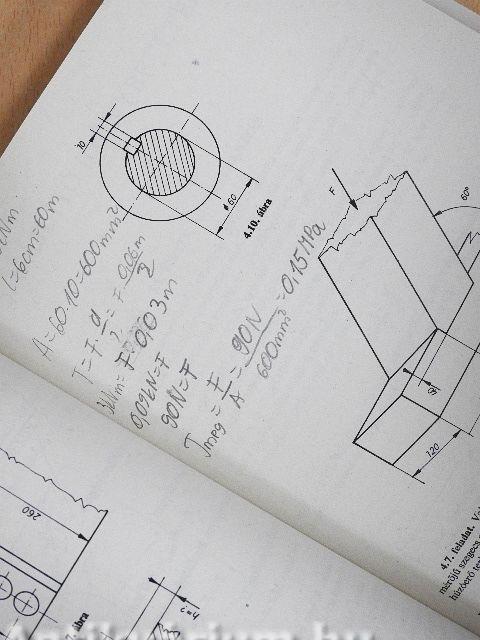 10
φ60
4.10. ábra
l=6cm=60m
A=60·10=600mm²
T=F·d/2=F·0,06m/2
3kNm=F·0,03m
0,09kN=F
90N=F
τmeg=F/A=90N/600mm²=0,15MPa
F
60°
120
260
ábra
4.7. feladat.
mérőjű szegecs
húzóerő